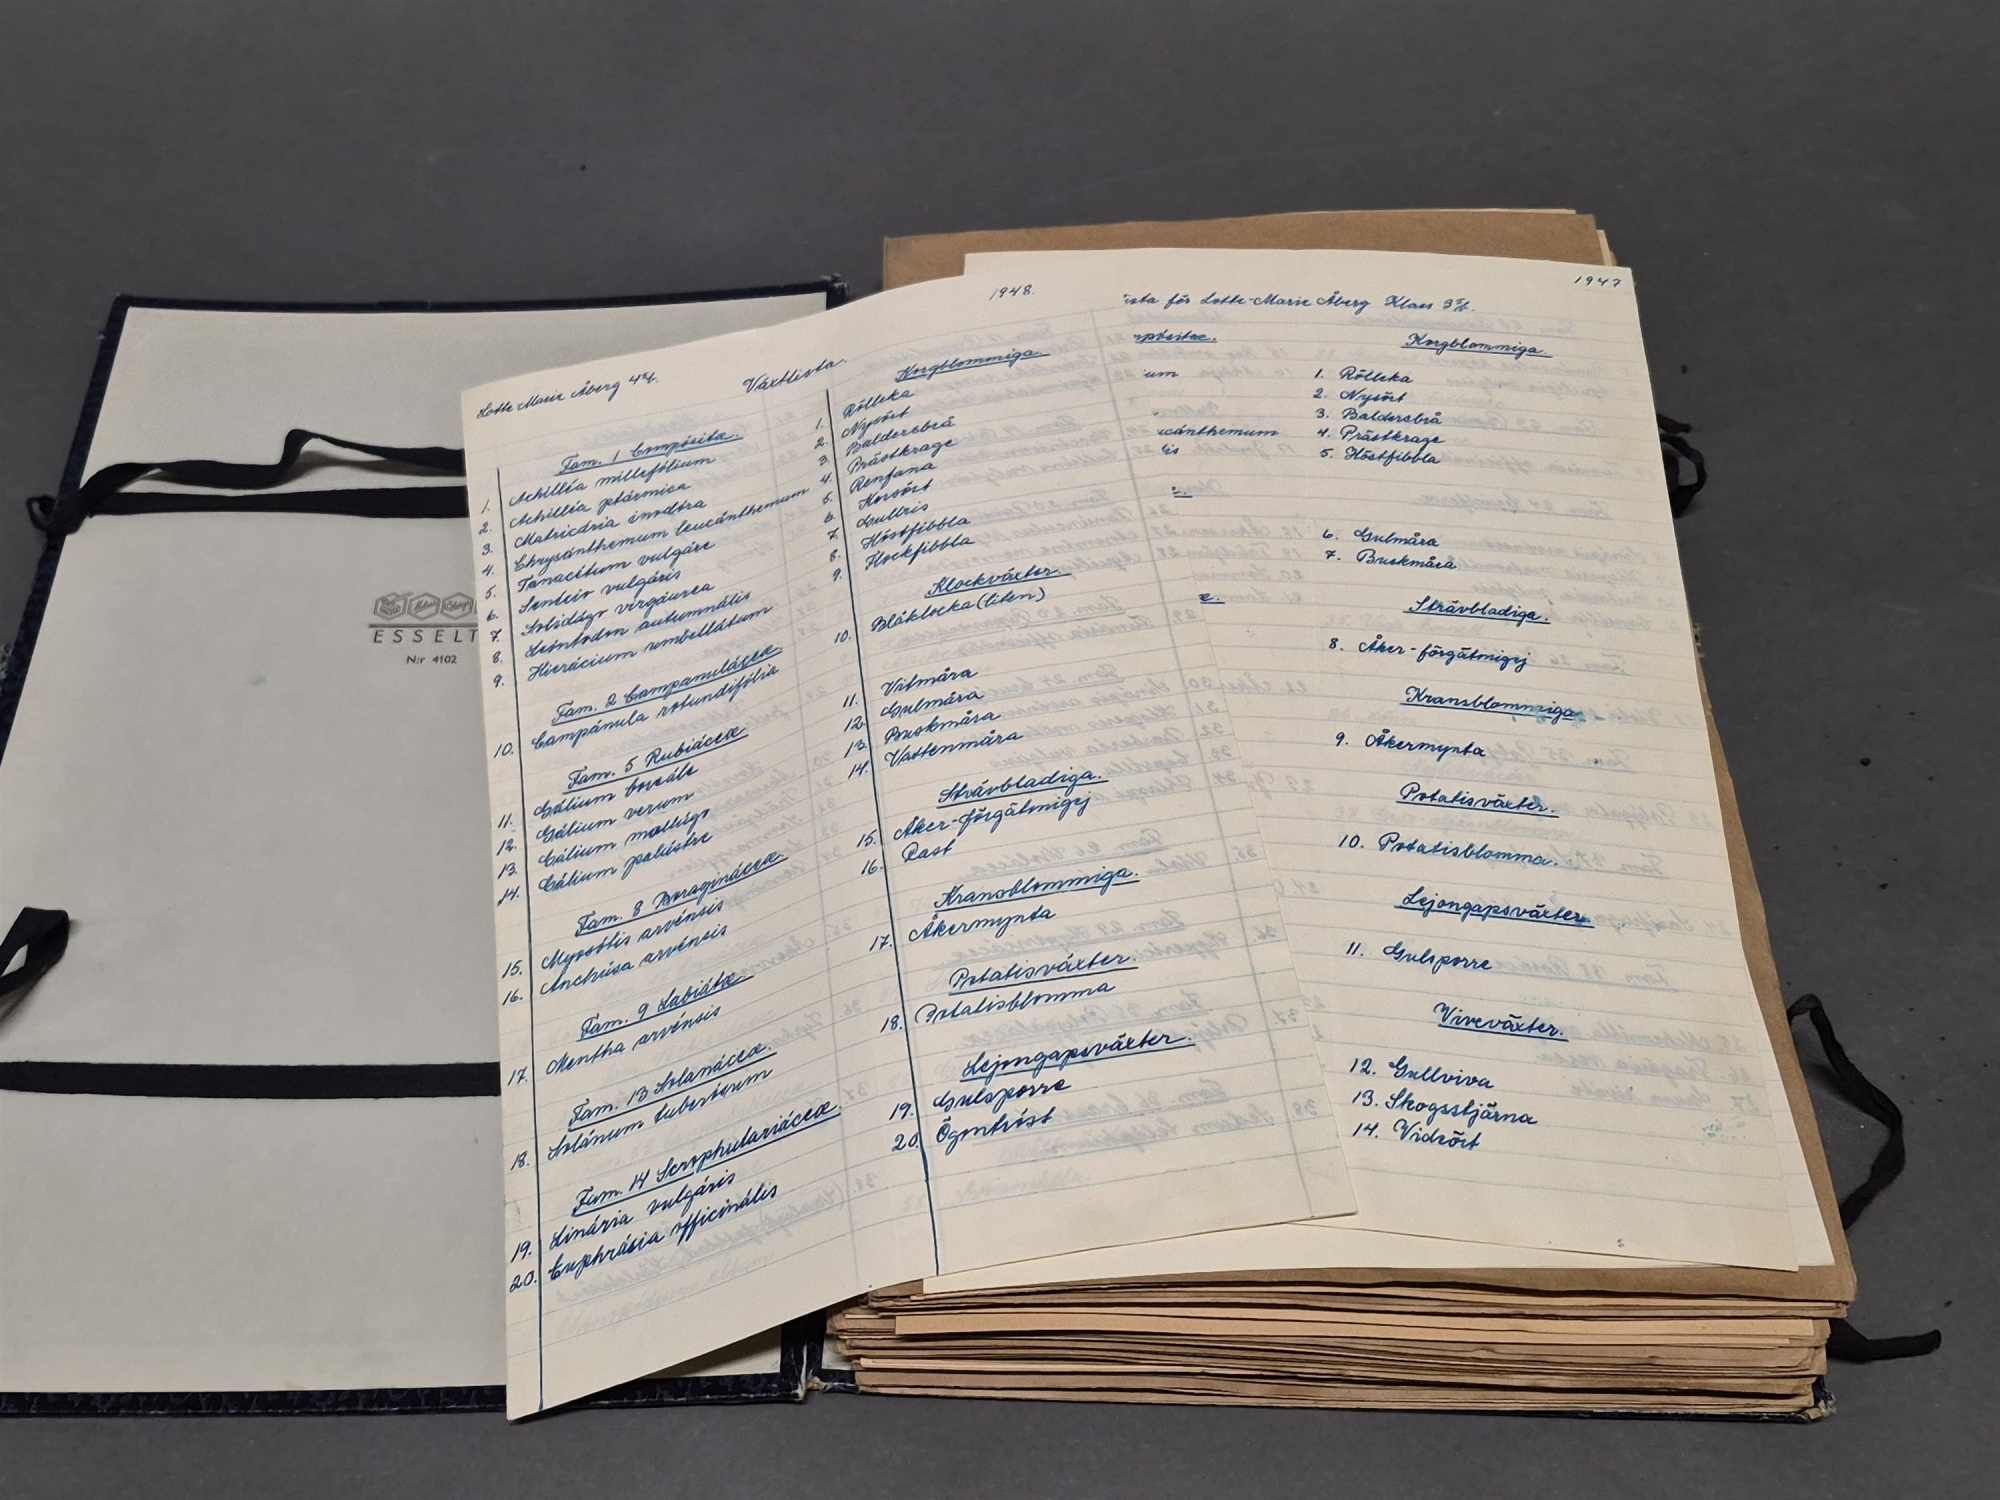 ESSELT
N:r 4102
1948.
Lotte-Marie Åberg 4
Växtlista.
Fam. 1 Compósitæ.
1. Achilléa millefólium
2. Achilléa ptármica
3. Matricária inodóra
4. Chrysánthemum leucánthemum
5. Tanacétum vulgáre
6. Senécio vulgáris
7. Solidágo virgáurea
8. Leóntodon autumnális
9. Hierácium umbellátum
Fam. 2 Campanuláceæ.
10. Campánula rotundifólia
Fam. 5 Rubiáceæ
11. Gálium boreále
12. Gálium verum
13. Gálium mollúgo
14. Gálium palústre
Fam. 8 Boragináceæ.
15. Myosótis arvénsis
16. Anchúsa arvénsis
Fam. 9 Labiátæ.
17. Mentha arvénsis
Fam. 13 Solanáceæ.
18. Solánum tuberósum
Fam. 14 Scrophulariáceæ.
19. Linária vulgáris
20. Euphrásia officinális
Korgblommiga.
1. Rölleka
2. Nysört
3. Baldersbrå
4. Prästkrage
5. Renfana
6. Korsört
7. Gullris
8. Höstfibbla
9. Flockfibbla
Klockväxter.
10. Blåklocka (liten)
11. Vitmåra
12. Gulmåra
13. Buskmåra
14. Vattenmåra
Strävbladiga.
15. Åker-förgätmigej
16. Fast
Kransblommiga.
17. Åkermynta
Potatisväxter.
18. Potatisblomma
Lejongapsväxter.
19. Gulsporre
20. Ögontröst
1947
ista för Lotte-Marie Åberg Klass 3
pósitæ.
ium
cánthemum
lis
æ.
Korgblommiga.
1. Rölleka
2. Nysört
3. Baldersbrå
4. Prästkrage
5. Höstfibbla
6. Gulmåra
7. Buskmåra
Strävbladiga.
8. Åker-förgätmigej
Kransblommiga
9. Åkermynta
Potatisväxter.
10. Potatisblomma.
Lejongapsväxter.
11. Gulsporre
Viveväxter.
12. Gullviva
13. Skogsstjärna
14. Videört